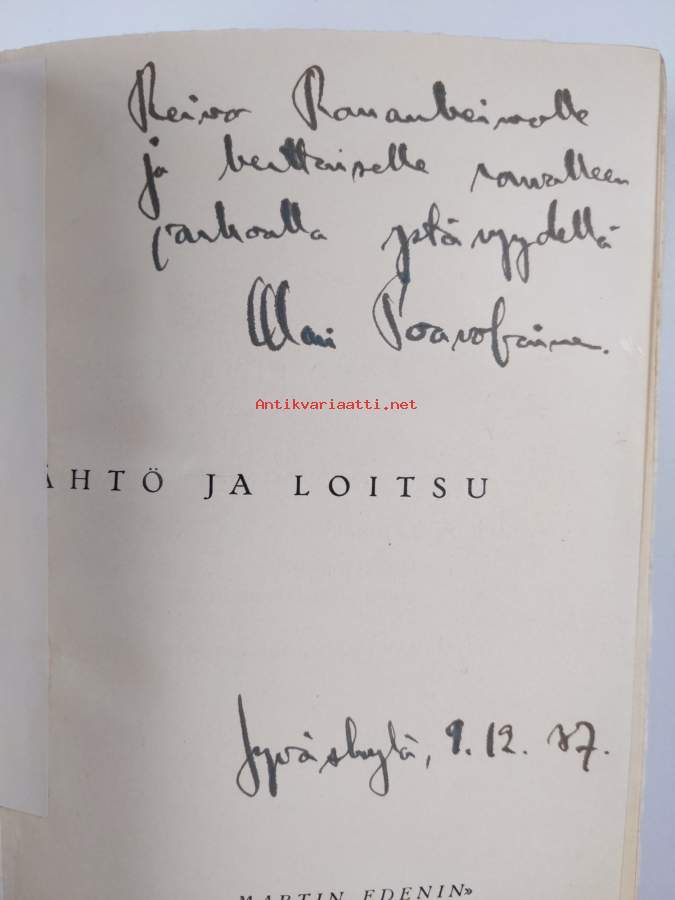 Reino Rauanheimolle
ja herttaiselle rouvalleen
parhaalla ystävyydellä
Olavi Paavolainen.
Antikvariaatti.net
ÄHTÖ JA LOITSU
Jyväskylä, 9.12.37.
MARTIN EDENIN»